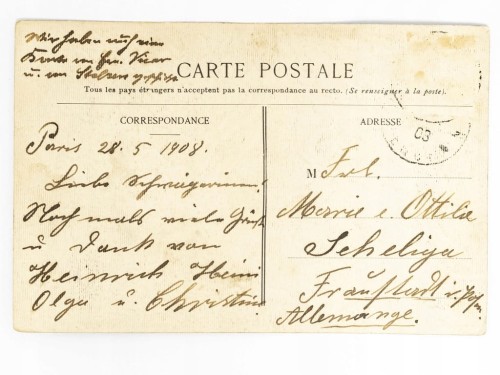 Wir haben auch eine
Karte von
u. von
CARTE POSTALE
Tous les pays étrangers n'acceptent pas la correspondance au recto. (Se renseigner à la poste).
CORRESPONDANCE
Paris 28. 5 1908.
Liebe Schwägerinnen!
Nochmals viele Grüße
u Dank von
Heinrich Heini
Olga u. Christine
ADRESSE
08
M Frl.
Marie e. Ottilie
Scheliga
Fraustadt
Allemange.